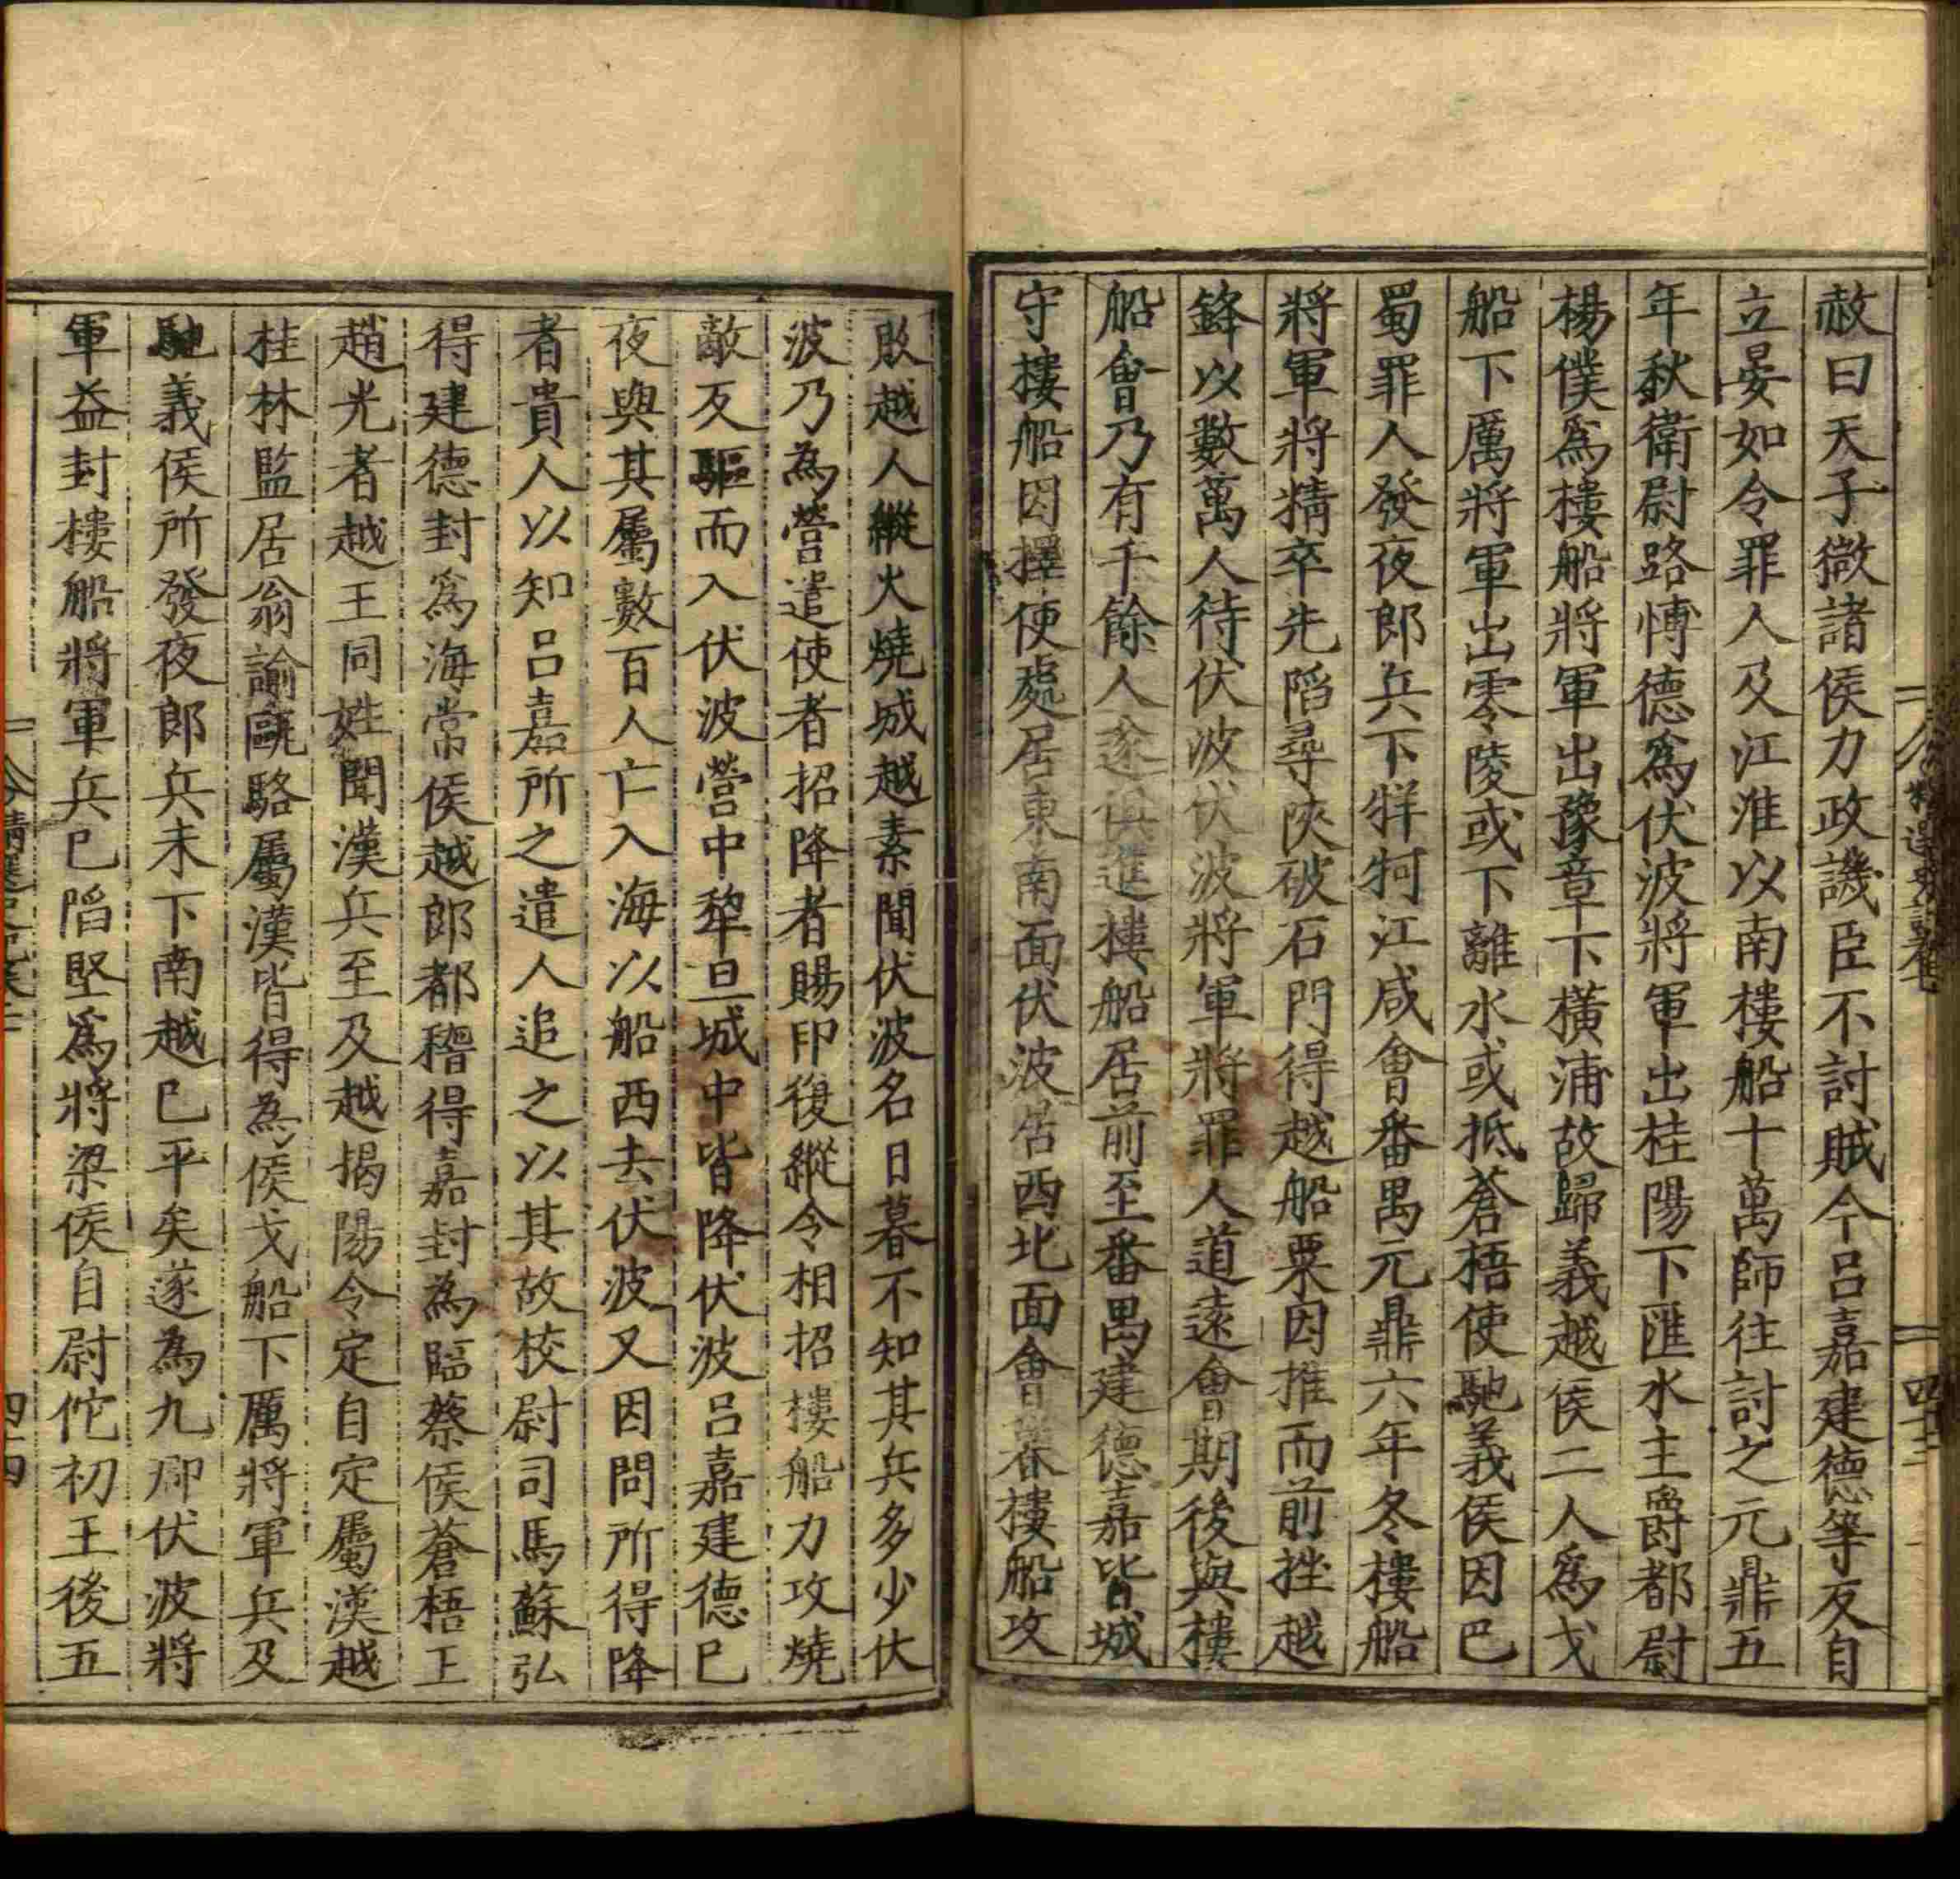 赦曰天子微諸侯力政譏臣不討賊今呂嘉建德等反自
立晏如令罪人及江淮以南樓船十萬師往討之元鼎五
年秋衛尉路愽德爲伏波將軍出桂陽下匯水主爵都尉
楊僕爲樓船將軍出豫章下橫浦故歸義越侯二人爲戈
船下厲將軍出零陵或下離水或抵蒼梧使馳義侯因巴
蜀罪人發夜郎兵下牂牁江咸會番禺元鼎六年冬樓船
將軍將精卒先陷尋陝破石門得越船粟因推而前挫越
鋒以數萬人待伏波伏波將軍將罪人道遠會期後與樓
船會乃有千餘人遂俱進樓船居前至番禺建德嘉皆城
守樓船因擇便處居東南面伏波居西北面會暮樓船攻
敗越人縱火燒城越素聞伏波名日暮不知其兵多少伏
波乃為營遣使者招降者賜印復縱令相招樓船力攻燒
敵反驅而入伏波營中犂旦城中皆降伏波呂嘉建德已
夜與其屬數百人亡入海以船西去伏波又因問所得降
者貴人以知呂嘉所之遣人追之以其故校尉司馬蘇弘
得建德封爲海常侯越郎都稽得嘉封為臨蔡侯蒼梧王
趙光者越王同姓聞漢兵至及越揭陽令定自定屬漢越
桂林監居翁諭甌駱屬漢皆得為侯戈船下厲將軍兵及
馳義侯所發夜郎兵未下南越已平矣遂為九郡伏波將
軍益封樓船將軍兵已陷堅爲將梁侯自尉佗初王後五
四十三
四十四